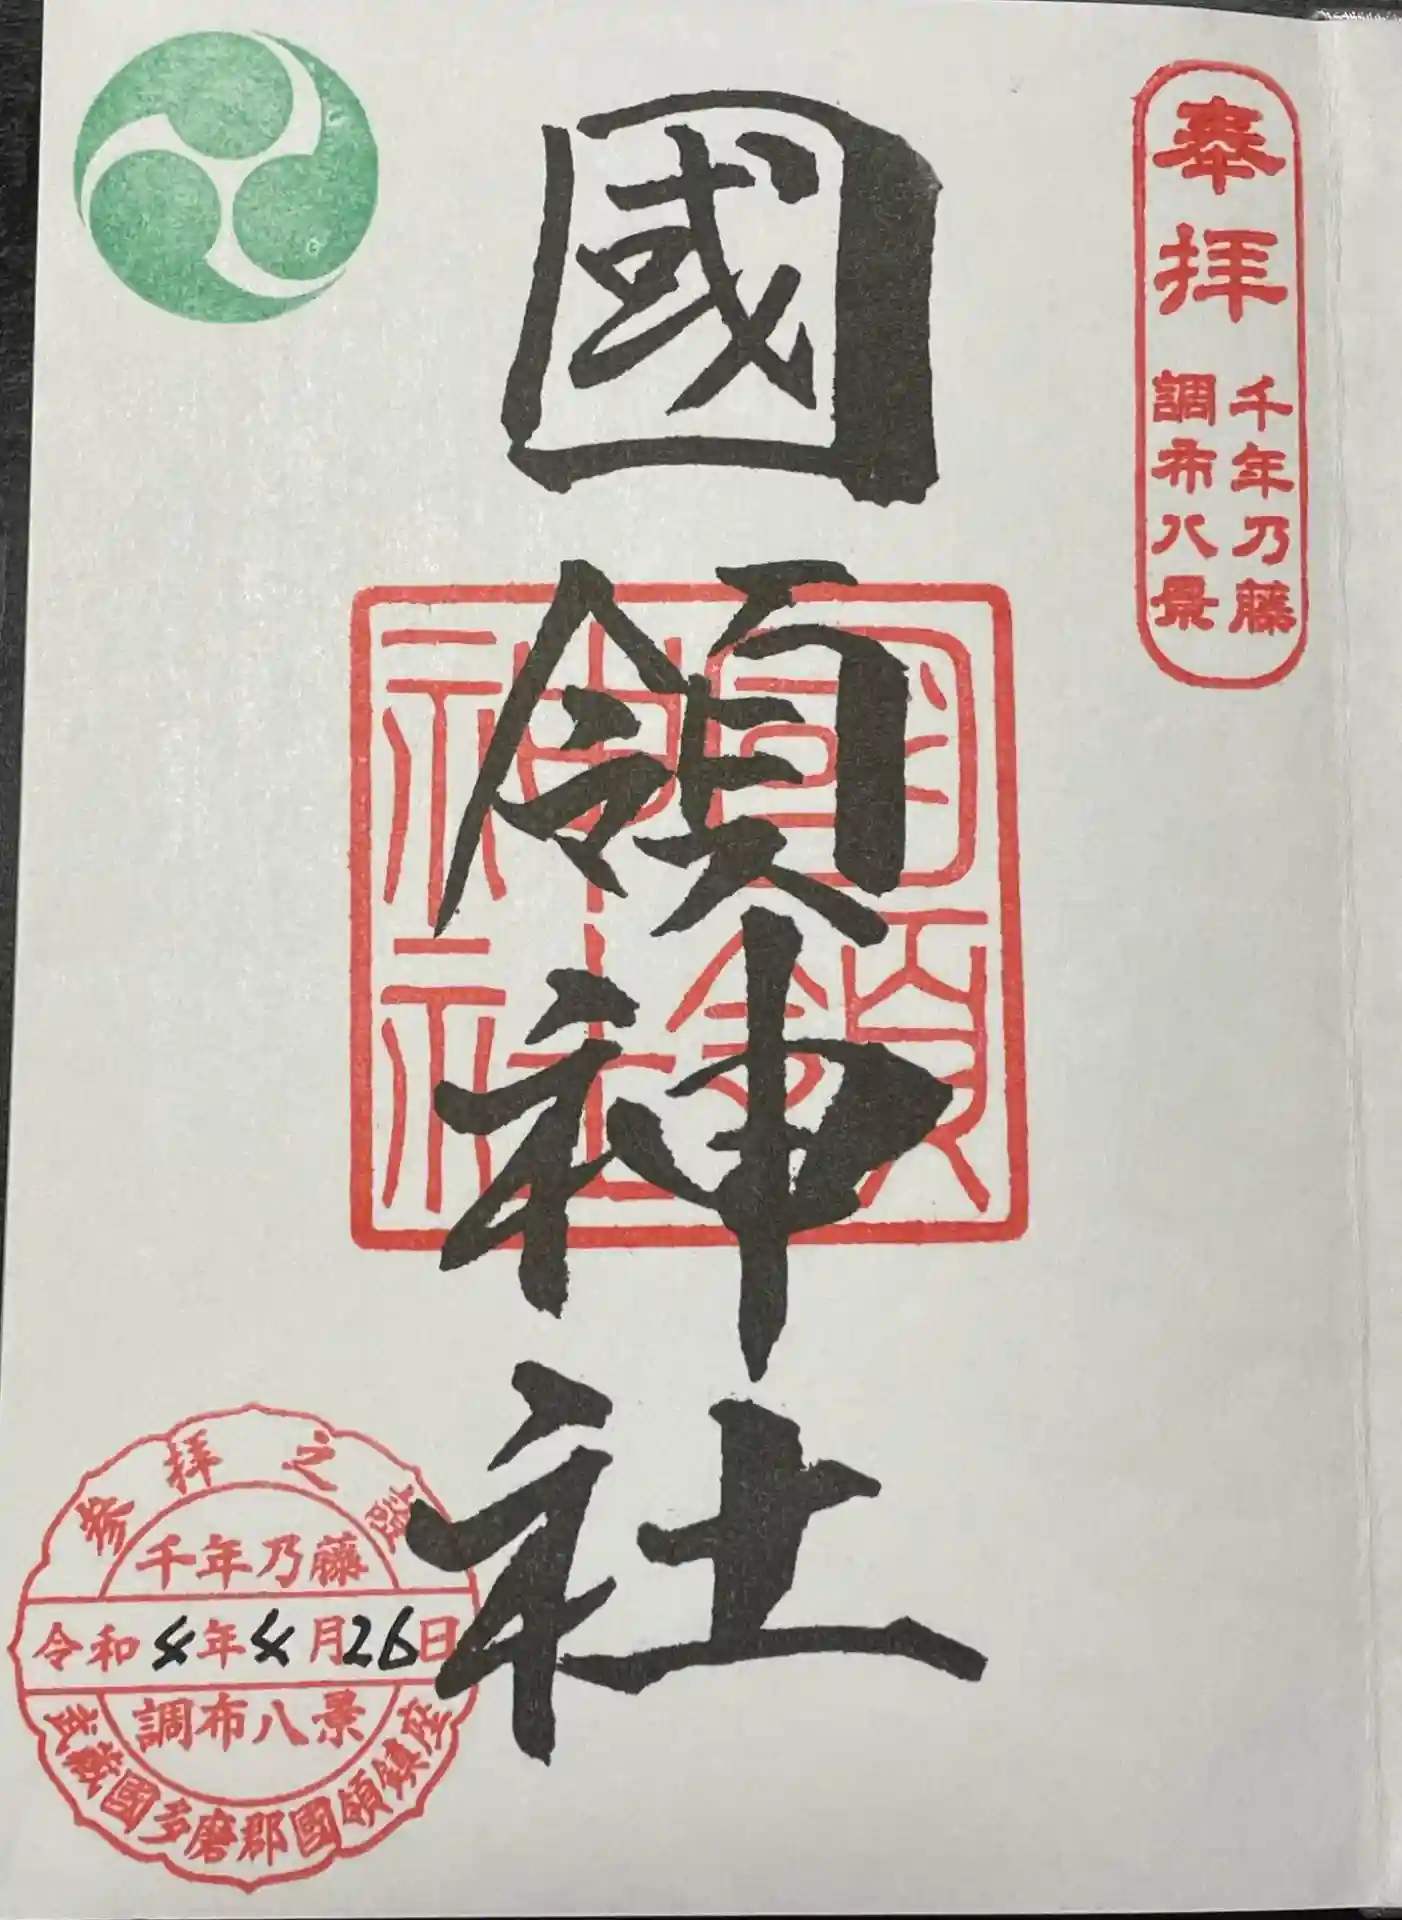 奉拝
千年乃藤
調布八景
國領神社
國領神社
参拝之證
千年乃藤
令和4年4月26日
調布八景
武蔵國多磨郡國領鎮座